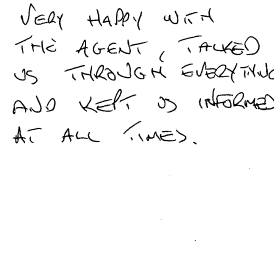 VERY HAPPY WITH
THE AGENT, TALKED
US THROUGH EVERYTHING
AND KEPT US INFORMED
AT ALL TIMES.